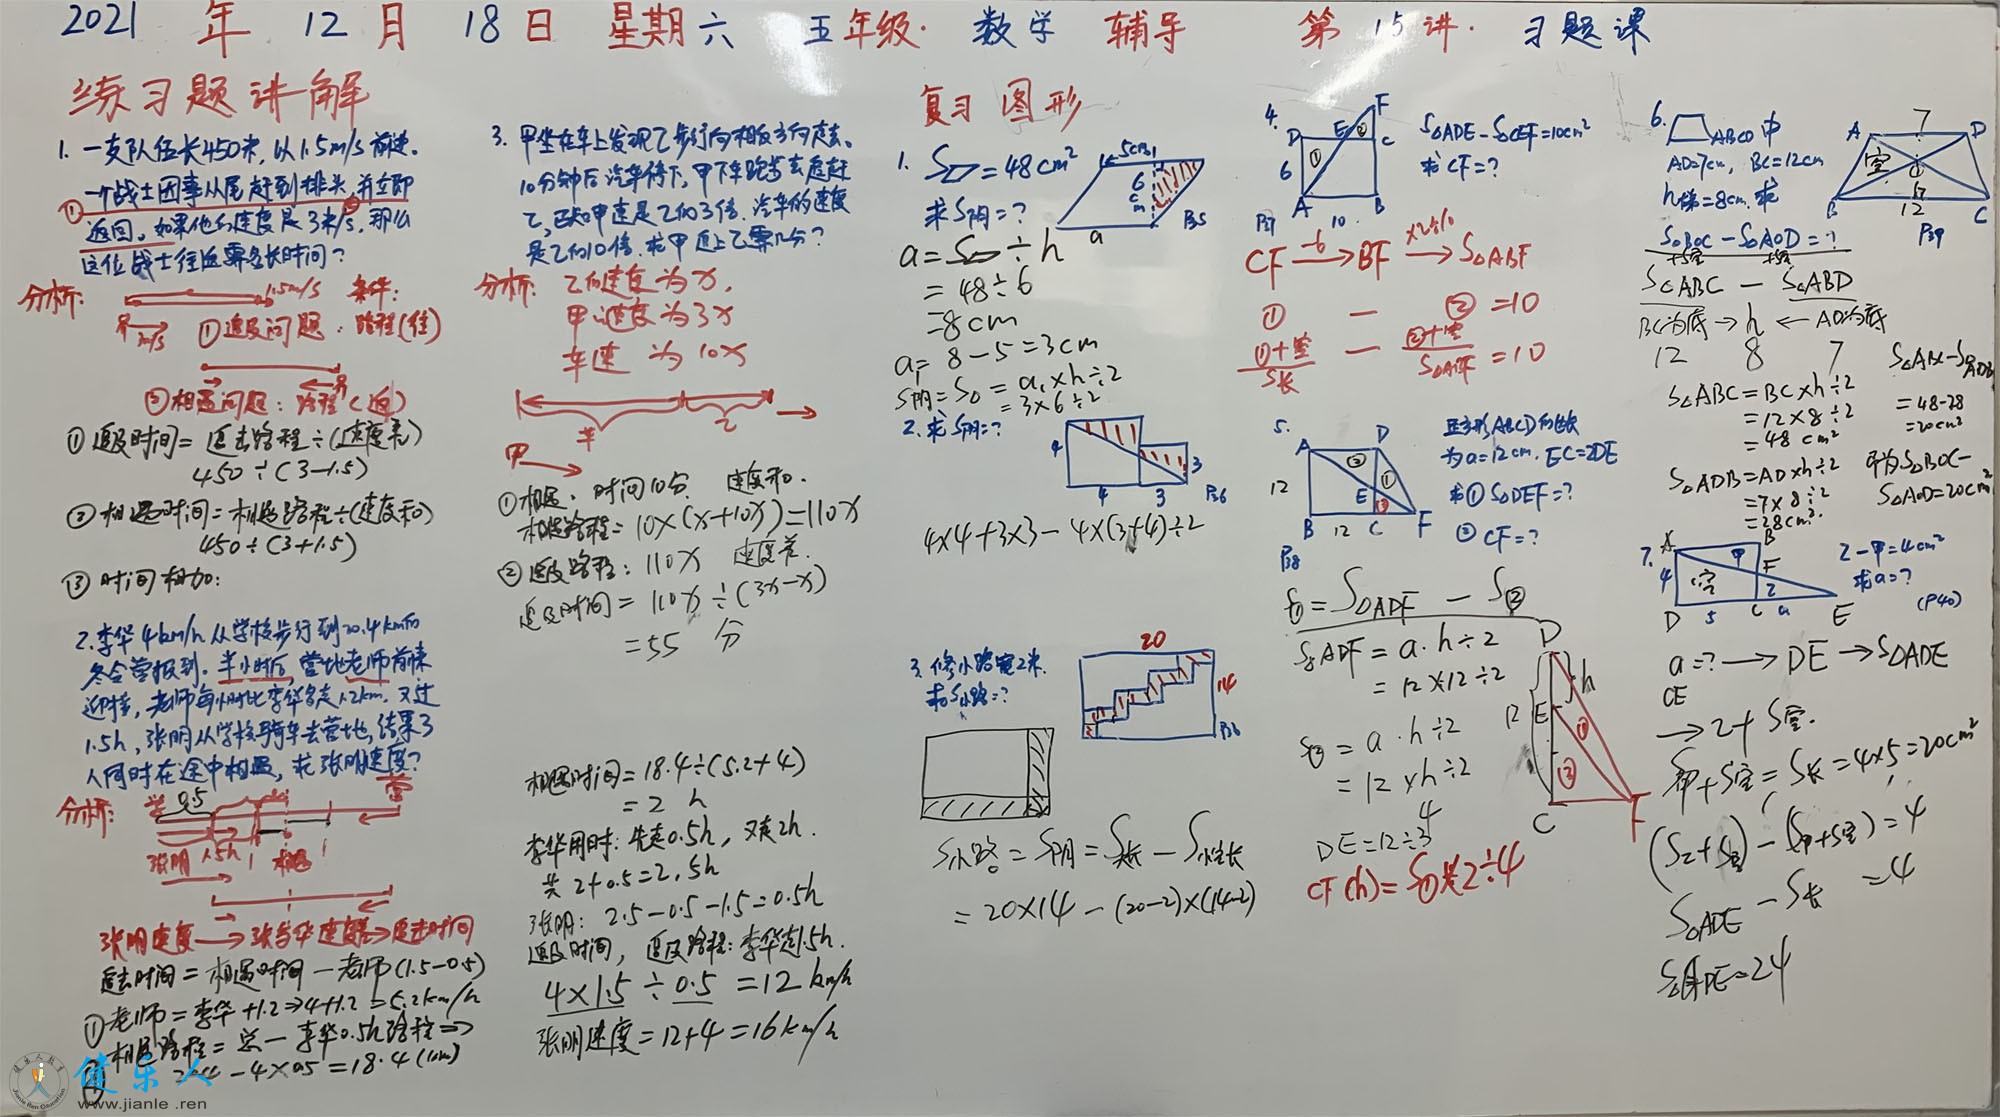 2021 年 12 月 18 日 星期六 五年级· 数学 辅导 第 15 讲· 习题课
练习题讲解
1. 一支队伍长450米,以1.5m/s前进.
一个战士因事从尾赶到排头,并立即
返回。如果他的速度是3米/s,那么
这位战士往返要多长时间?
分析:
1.5m/s
条件:
①追及问题.
路程(往)
②相遇问题: 路程(返)
①追及时间=追击路程÷(速度差)
450÷(3-1.5)
②相遇时间=相遇路程÷(速度和)
450÷(3+1.5)
③时间相加:
2.李华4km/h从学校步行到20.4km的
冬令营报到. 半小时后,营地老师前来
迎接,老师每小时比李华多走1.2km. 又过
1.5h,张明从学校骑车去营地,结果3
人同时在途中相遇,求张明速度?
分析:
学
0.5
营
张明 1.5h
相遇
张明速度→张与华速度差→追击时间
追击时间=相遇时间-老师(1.5-0.5)
①老师=李华+1.2⇒4+1.2=5.2km/h
②相遇路程=总-李华0.5h路程⇒
20.4-4×0.5=18.4(km)
3. 甲坐在车上发现乙步行向相反方向走去。
10分钟后汽车停下,甲下车跑步去追赶
乙,已知甲速是乙的3倍.汽车的速度
是乙的10倍.求甲追上乙要几分?
分析:乙的速度为x,
甲速度为3x
车速 为10x
车
乙
甲
①相遇. 时间10分. 速度和.
相遇路程=10×(x+10x)=110x
②追及路程:110x 速度差.
追及时间=110x÷(3x-x)
=55 分
相遇时间=18.4÷(5.2+4)
=2 h
李华用时:先走0.5h,又走2h.
共 2+0.5=2.5h
张明: 2.5-0.5-1.5=0.5h
追及时间, 追及路程:李华走1.5h.
4×1.5÷0.5=12km/h
张明速度=12+4=16km/h
复习 图形
1. S▱=48cm²
求S阴=?
5cm
6cm
a
P35
a=S▱÷h
=48÷6
=8cm
a₁=8-5=3cm
S阴=S△=a₁×h÷2
=3×6÷2
2.求S阴=?
4
4
3
3
P36
4×4+3×3-4×(3+4)÷2
3.修小路宽2米.
求S小路=?
20
14
P36
S小路=S阴=S长-S小长
=20×14-(20-2)×(14-2)
4.
D E F C A B
① ②
6
10
P37
S△ADE-S△CEF=10cm²
求CF=?
CF -6→ BF ×10÷2→ S△ABF
① - ②=10
①+空 - ②+空 =10
S长 S△ABF
5.
A D E B C F
12
12
② ① ③
P38
正方形ABCD的边长
为a=12cm. EC=2DE
求①S△DEF=?
②CF=?
S①=S△ADF-S②
S△ADF=a·h÷2
=12×12÷2
S②=a·h÷2
=12×h÷2
4
DE=12÷3
CF(h)=S①×2÷4
D
h
12
E
①
③
C
F
6.
ABCD中
AD=7cm, BC=12cm
h梯=8cm.求
S△BOC-S△AOD=?
+S空 +S空
7
A D
空
B
12
C
P39
S△ABC - S△ABD
BC为底→h←AD为底
12 8 7
S△ABC=BC×h÷2
=12×8÷2
=48cm²
S△ADB=AD×h÷2
=7×8÷2
=28cm².
S△ABC-S△ADB
=48-28
=20cm²
即为S△BOC-
S△AOD=20cm²
7.
A B
甲
F
4
空
乙
D 5 C a E
乙-甲=4cm²
求a=?
(P40)
a=?→DE→S△ADE
CE
→乙+S空.
S甲+S空=S长=4×5=20cm²
(S乙+S空)-(S甲+S空)=4
S△ADE-S长=4
S△ADE=24
健乐人
www.jianle.ren